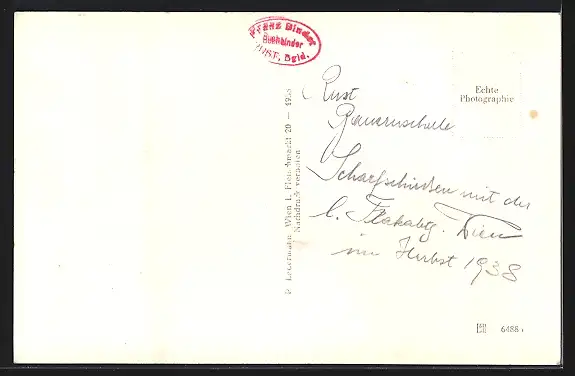 Franz Binder
Buchbinder
RUST, Bgld.
Echte
Photographie
P. Ledermann, Wien I, Fleischmarkt 20 — 1938
Nachdruck verboten
Rust
Bauernschelle
Scharfschießen mit der
l. Flakabtg. Wien
im Herbst 1938
6488